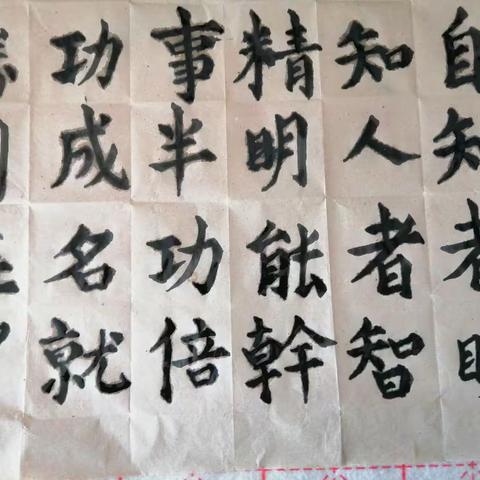 自知者明
知人者智
精明能幹
事半功倍
功成名就